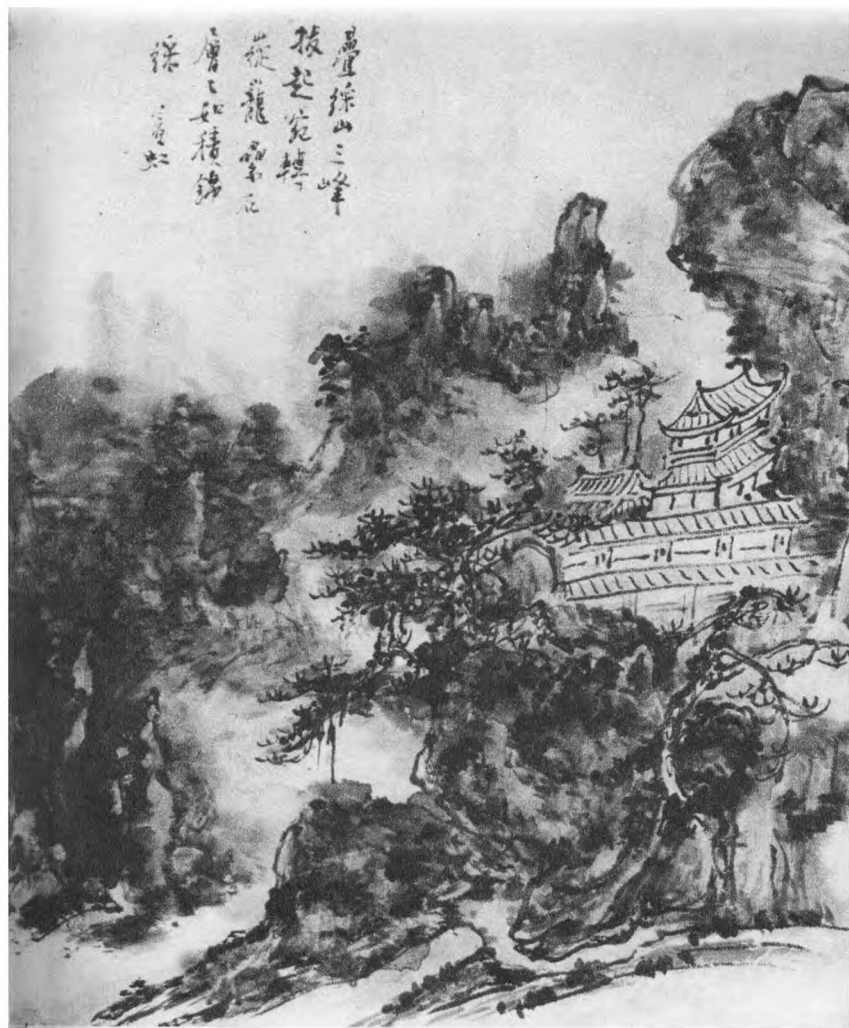 疊綵山三峰
拔起宛轉
嵸巃纍石
層々如積錦
綵 賓虹